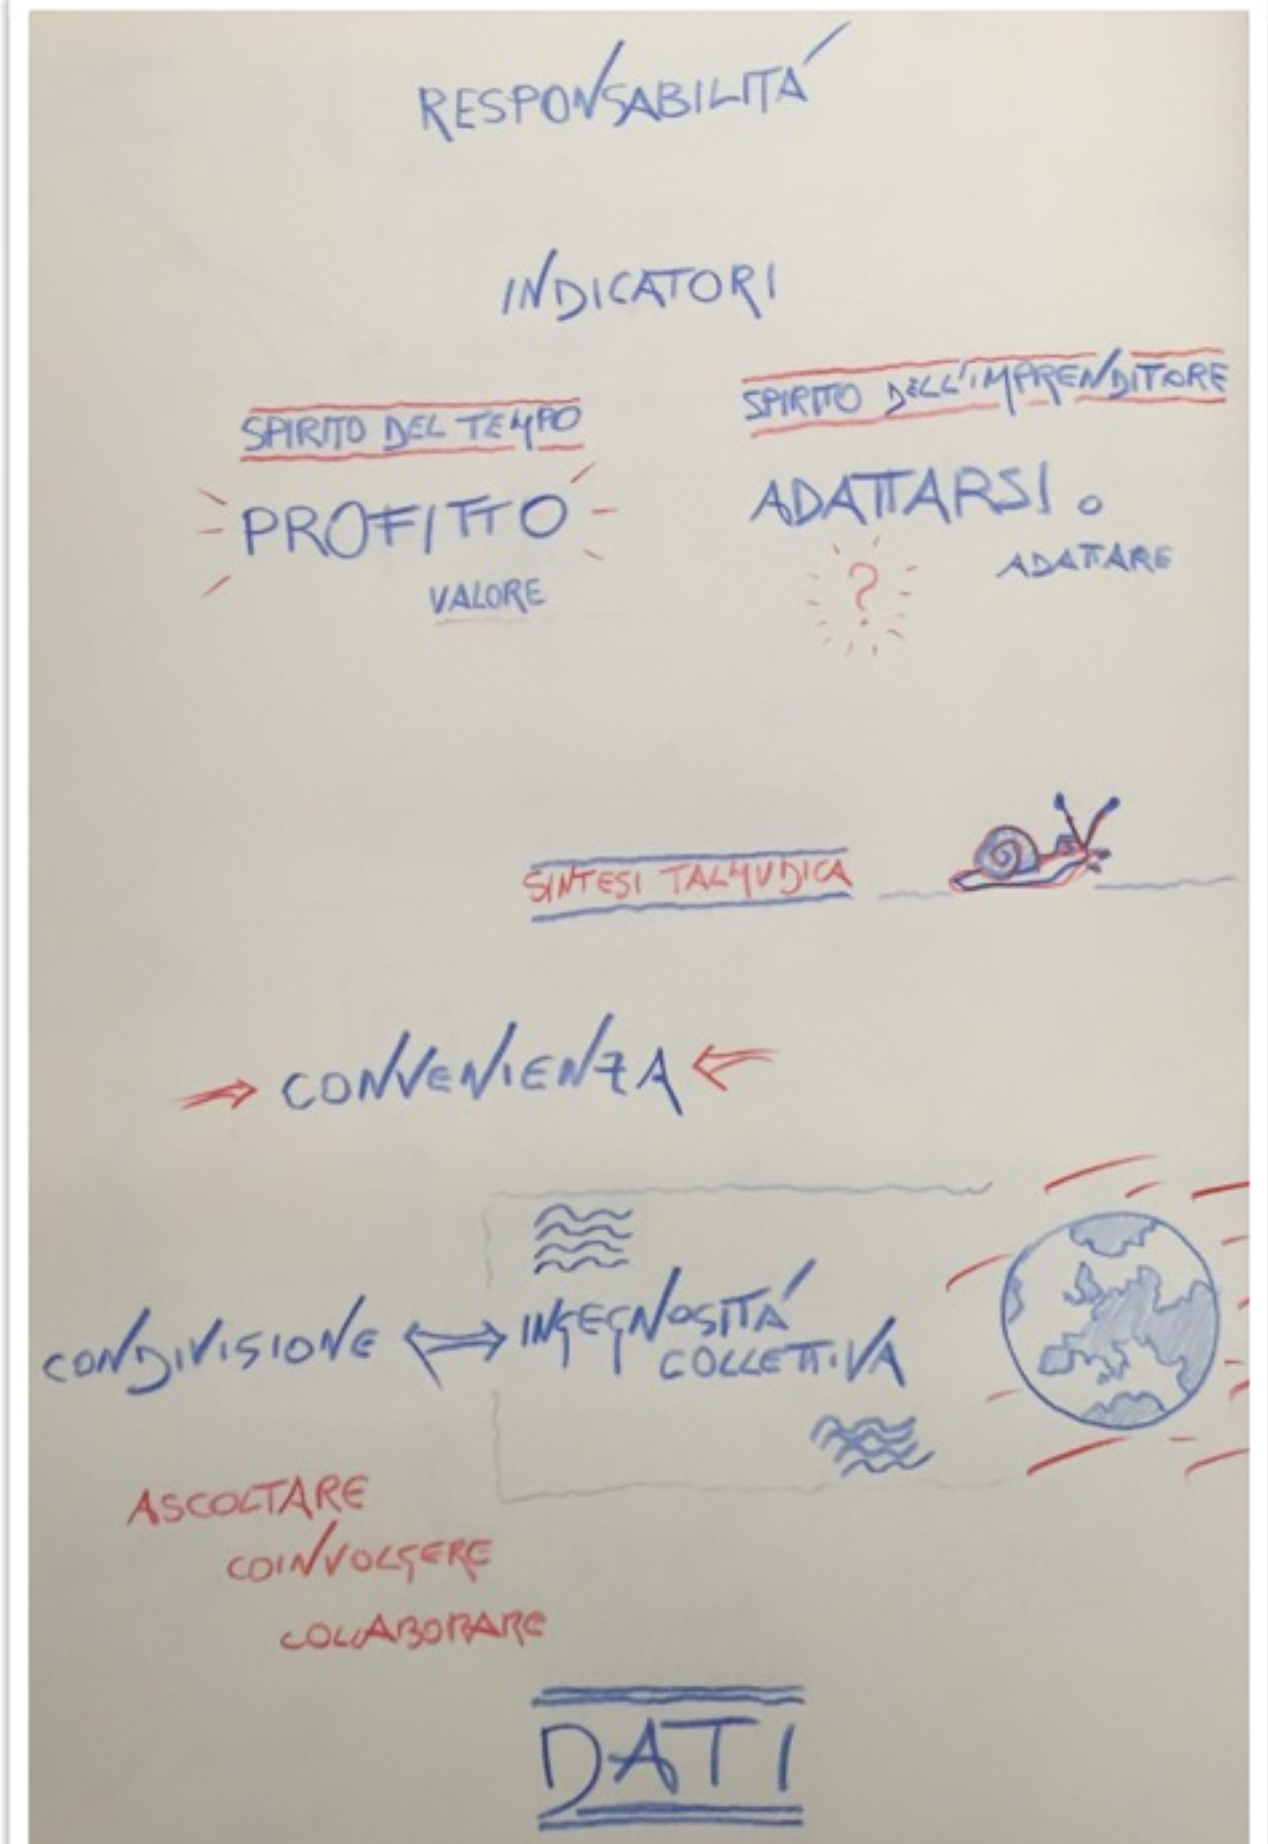 RESPONSABILITÁ
INDICATORI
SPIRITO DEL TEMPO
SPIRITO DELL'IMPRENDITORE
PROFITTO
ADATTARSI o
VALORE
?
ADATTARE
SINTESI TALMUDICA
CONVENIENZA
CONDIVISIONE
INGEGNOSITÁ
COLLETTIVA
ASCOLTARE
COINVOLGERE
COLLABORARE
DATI